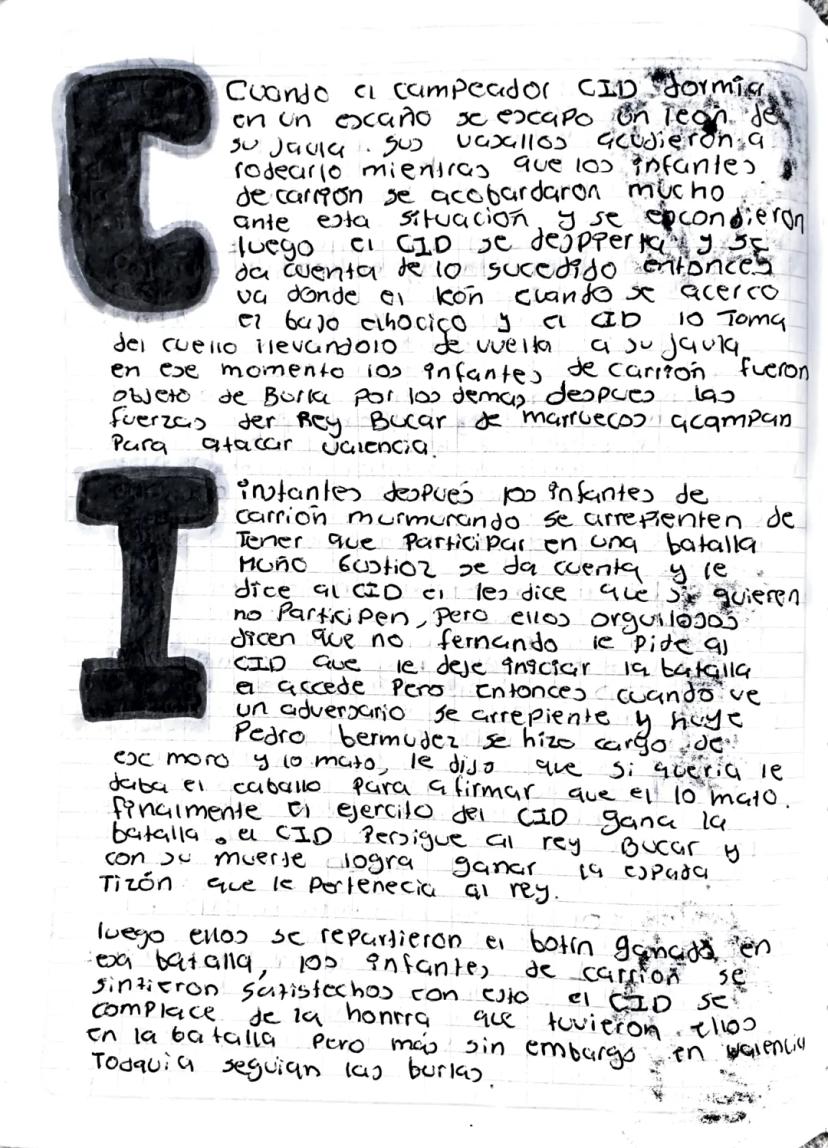 C
Cuando el campeador CID dormia
en un escaño se escapo un leon de
su jaula. sus vasallos acudieron a
rodearlo mientras que los infantes
de carrion se acobardaron mucho
ante esta situación y se escondieron
luego el CID se despierta y se
da cuenta de lo sucedido entonces
va donde el león cuando se acerco
el bajo elhocico y el CID lo Toma
del cuello llevandolo de vuelta a su jaula
en ese momento los infantes de carrion fueron
objeto de Burla por los demas, despues las
fuerzas der Rey Bucar de marruecos acampan
Para atacar valencia.
I
instantes después los infantes de
carrion murmurando se arrepienten de
Tener que Participar en una batalla
Muño Gustioz se da cuenta y le
dice al CID el les dice que si quieren
no Participen, Pero ellos orgullosos
dicen que no fernando le Pide al
CID que le deje iniciar la batalla
el accede Pero entonces cuando ve
un adversario se arrepiente y huye
Pedro bermudez se hizo cargo de
ese moro y lo mato, le dijo que si queria le
daba el caballo para afirmar que el lo mato.
finalmente el ejercito del CID gana la
batalla. el CID Persigue al rey Bucar y
con su muerte logra ganar la espada
Tizón que le Pertenecia al rey.
luego ellos se repartieron el botin ganado en
esa batalla, los infantes de carrion se
sintieron satisfechos con esto el CID se
complace de la honrra que tuvieron ellos
en la batalla Pero más sin embargo en valencia
Todavia seguian las burlas.